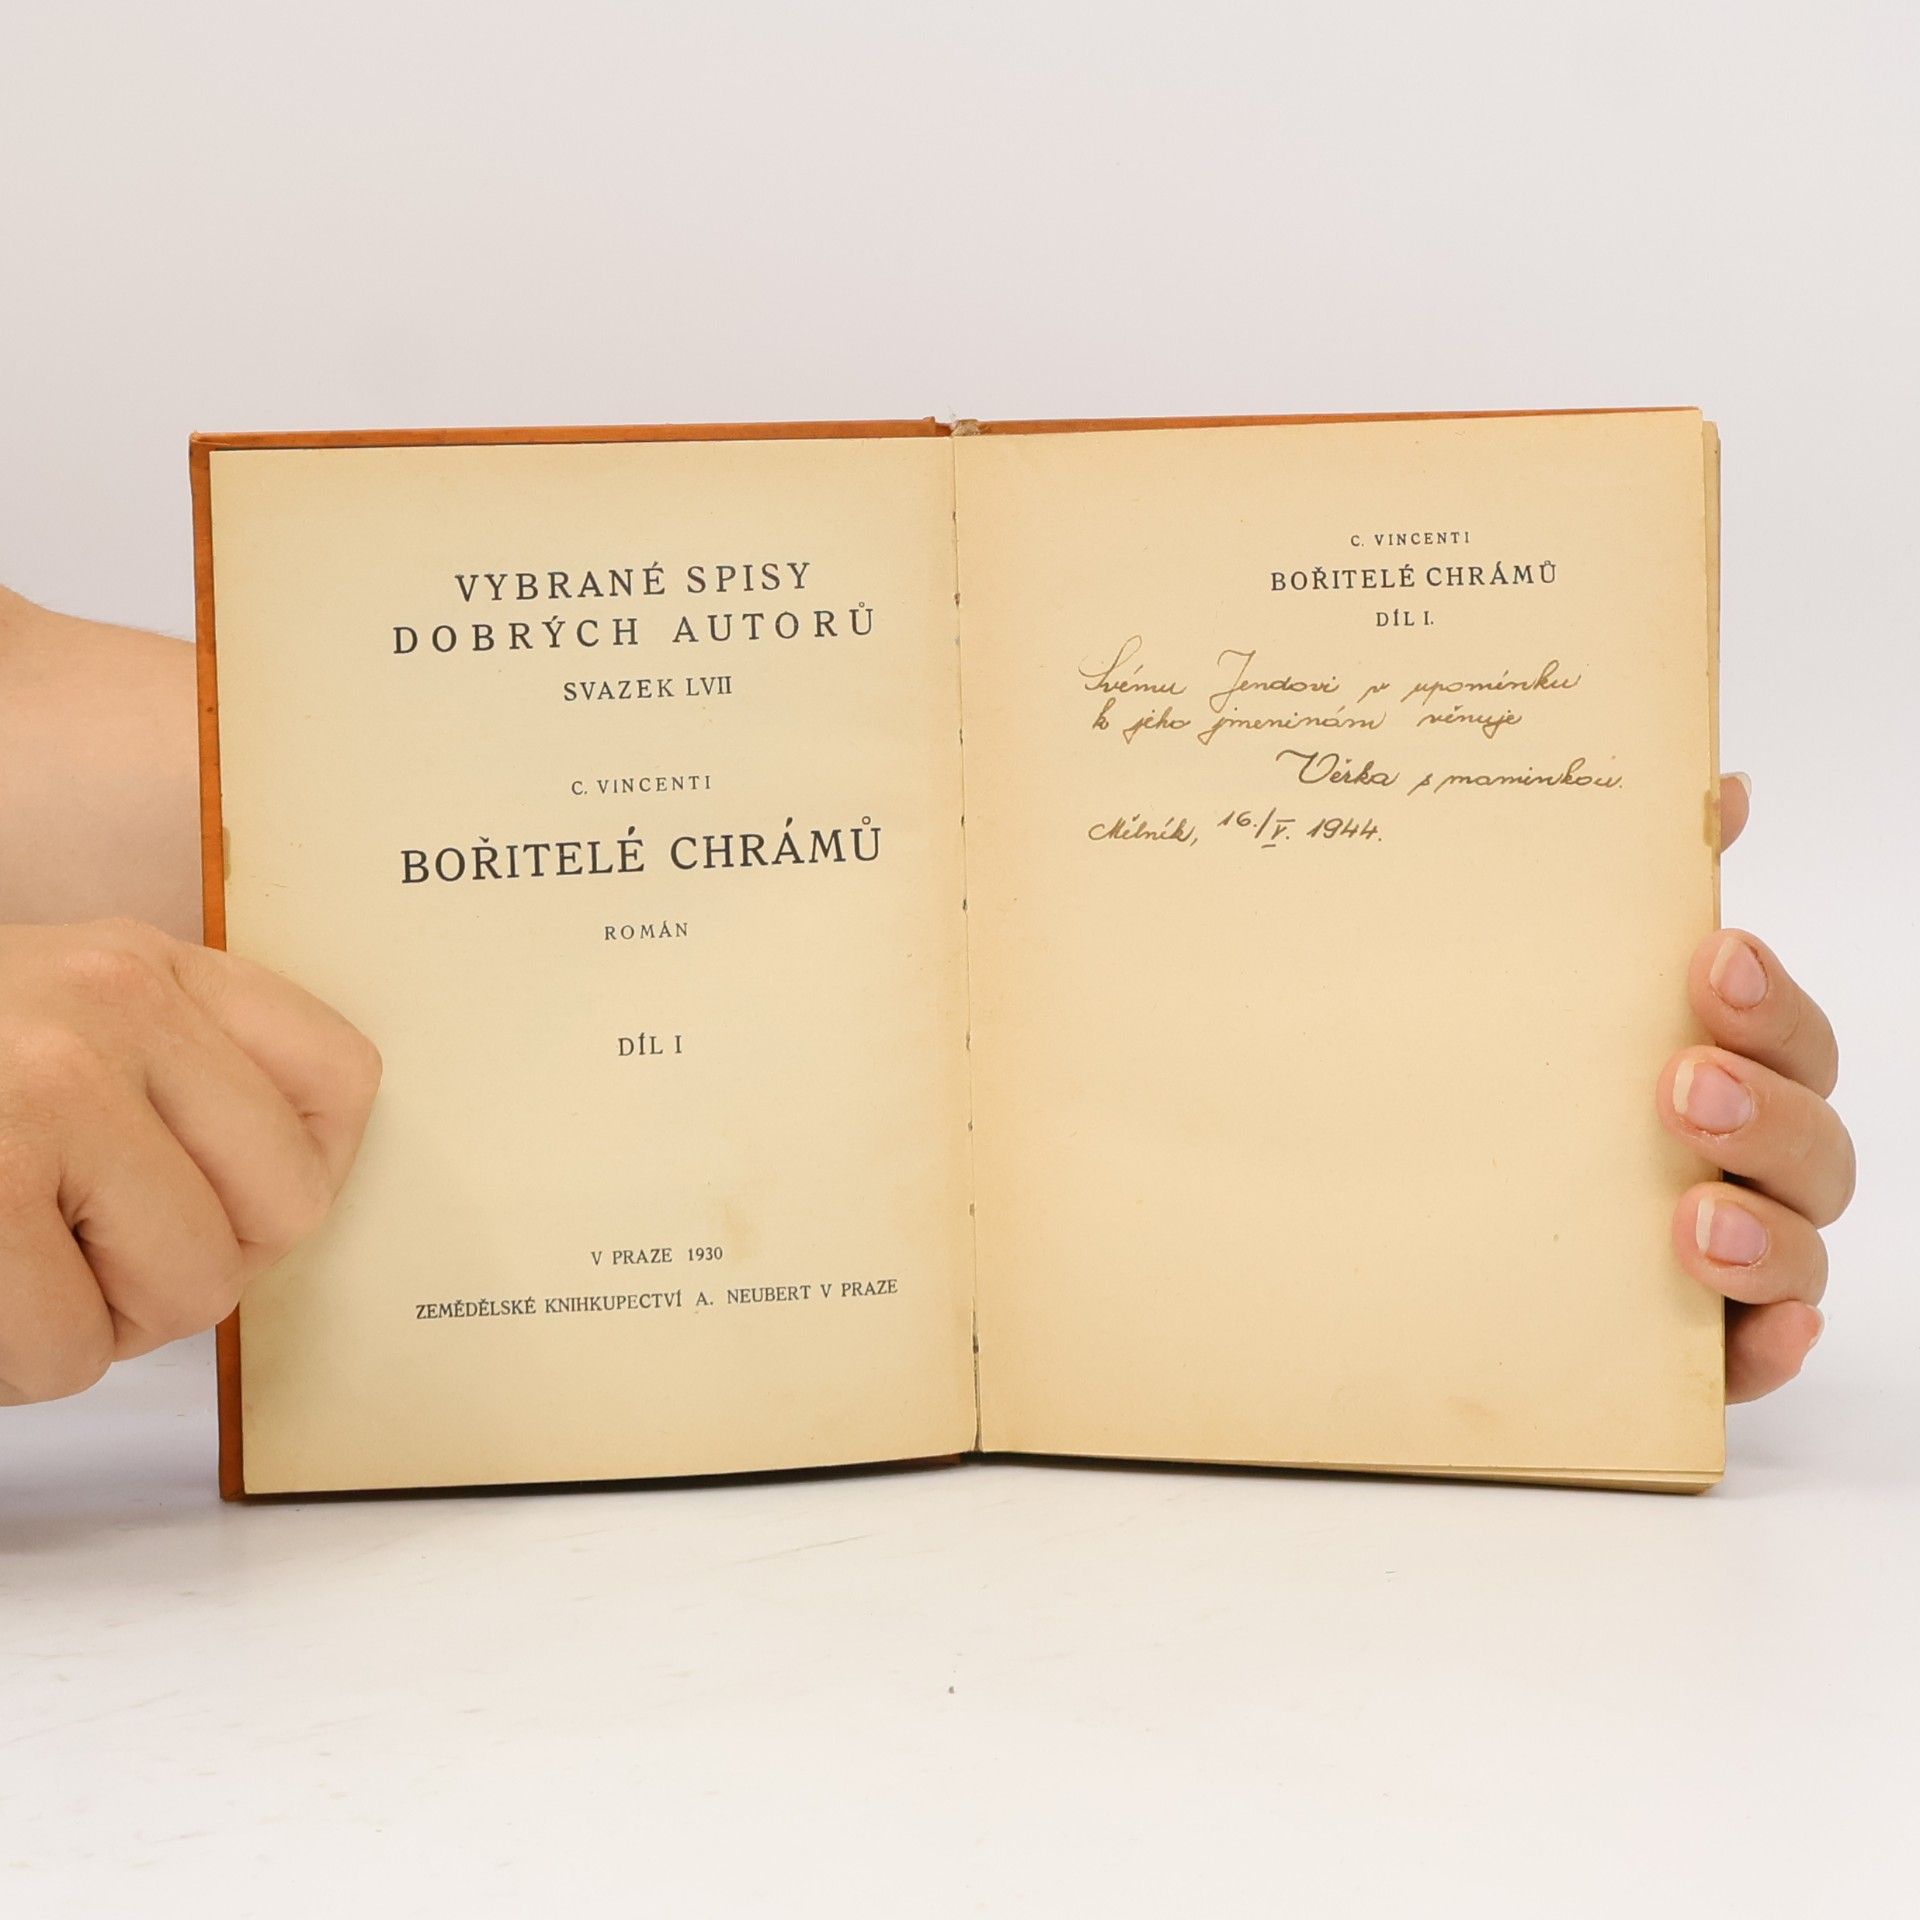 VYBRANÉ SPISY
DOBRÝCH AUTORŮ
SVAZEK LVII
C. VINCENTI
BOŘITELÉ CHRÁMŮ
ROMÁN
DÍL I
V PRAZE 1930
ZEMĚDĚLSKÉ KNIHKUPECTVÍ A. NEUBERT V PRAZE
C. VINCENTI
BOŘITELÉ CHRÁMŮ
DÍL I.
Svému Jendovi v upomínku
k jeho jmeninám věnuje
Věrka s maminkou.
Mělník, 16./V. 1944.